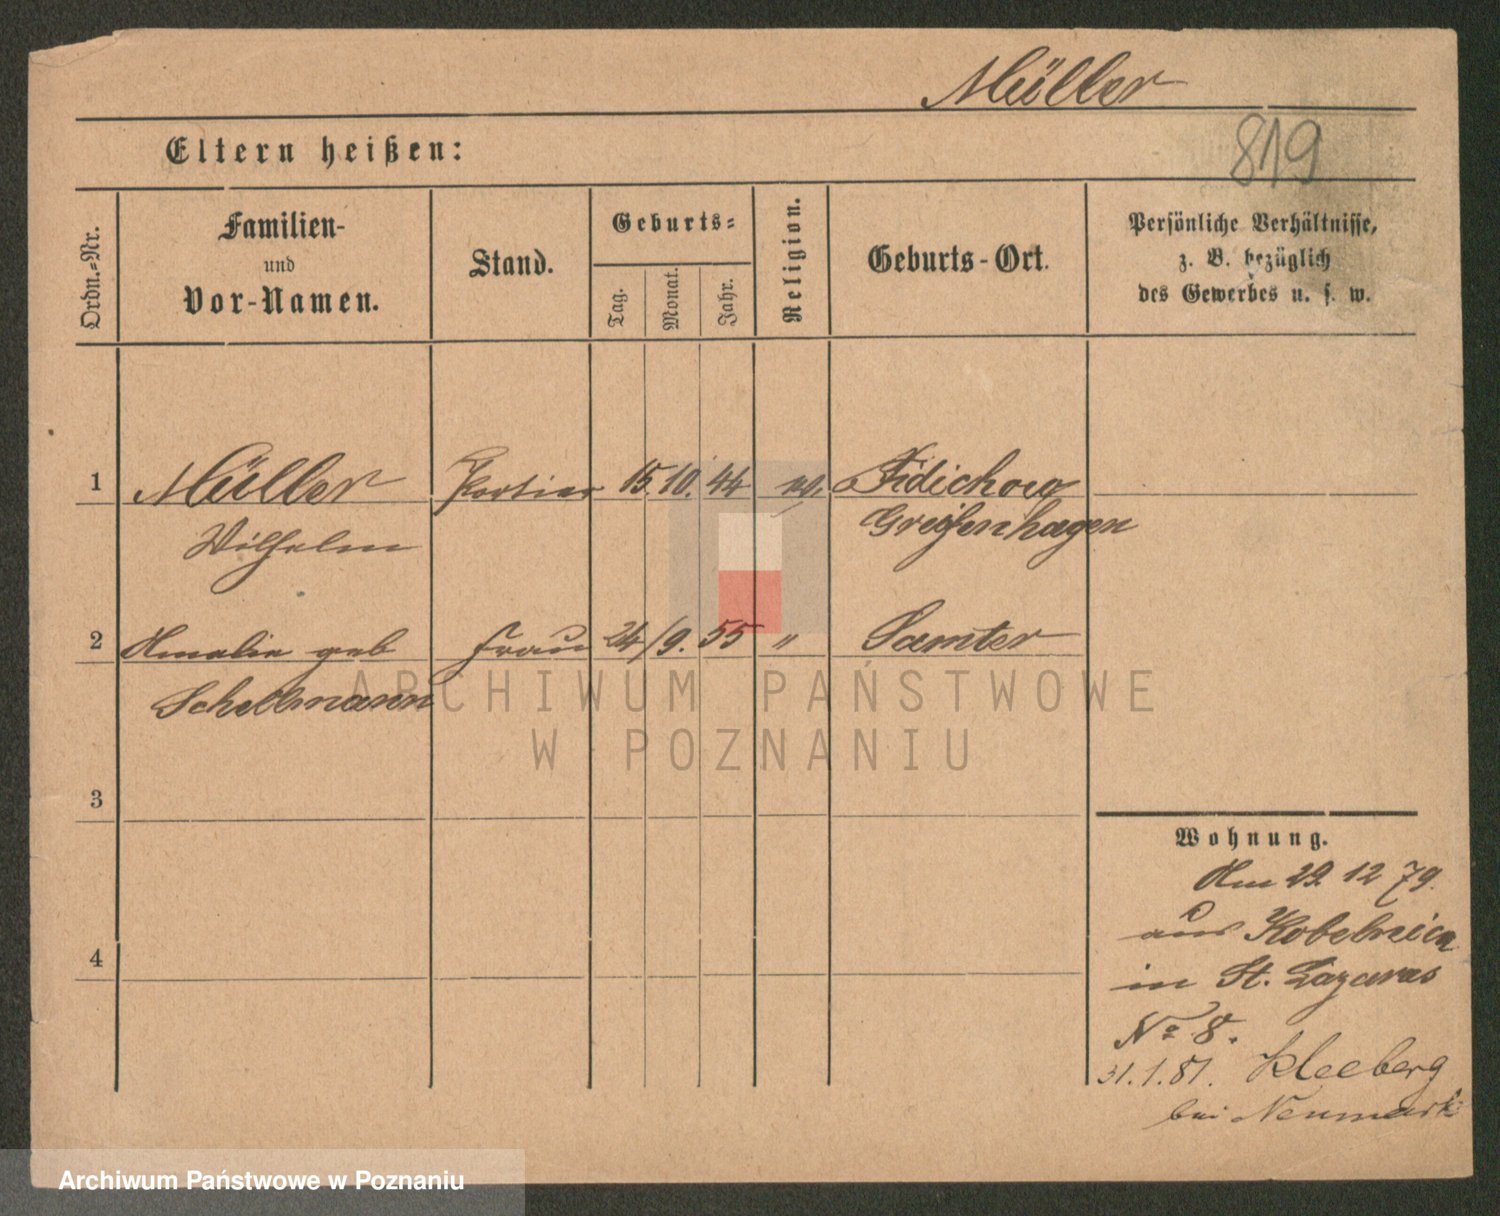 Müller
819
Eltern heißen:
Ordn.=Nr.
Familien-
und
Vor-Namen.
Stand.
Geburts=
Tag.
Monat.
Jahr.
Religion.
Geburts-Ort.
Persönliche Verhältnisse,
z. B. bezüglich
des Gewerbes u. s. w.
1 Müller Portier 15. 10. 44 Fidichow
Wilhelm Greifenhagen
2 Amalie geb Frau 24/9. 55 " Samter
Schellmann
ARCHIWUM PAŃSTWOWE
W POZNANIU
3
4
Wohnung.
Am 29. 12 79.
aus Kobelnica
in St. Lazarus
No 8.
31.1.81. Kleeberg
bei Neumark
Archiwum Państwowe w Poznaniu